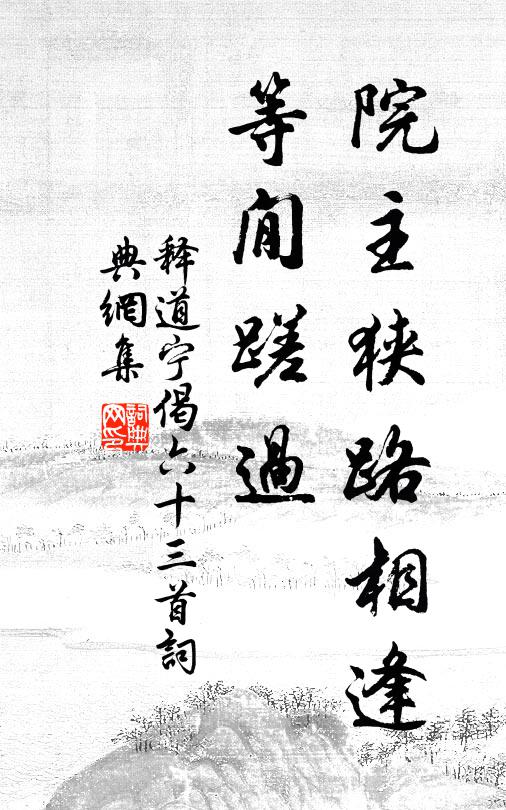 院主狭路相逢
等閒蹉過
释道宁偈六十三首詞
典網集
詞典网印